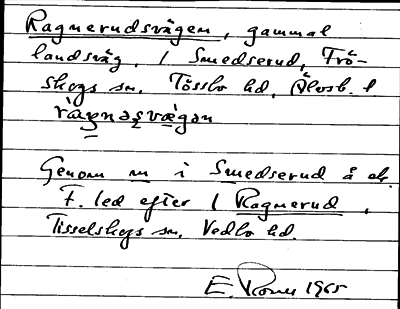 Ragnerudsvägen, gammal
landsväg, i Smedserud, Frö-
skogs sn. Tössbo hd, Älvsb. l
Genom m i Smedserud å ek.
F. led efter l Ragnerud,
Tisselskogs sn. Vedbo hd.
E. 1965